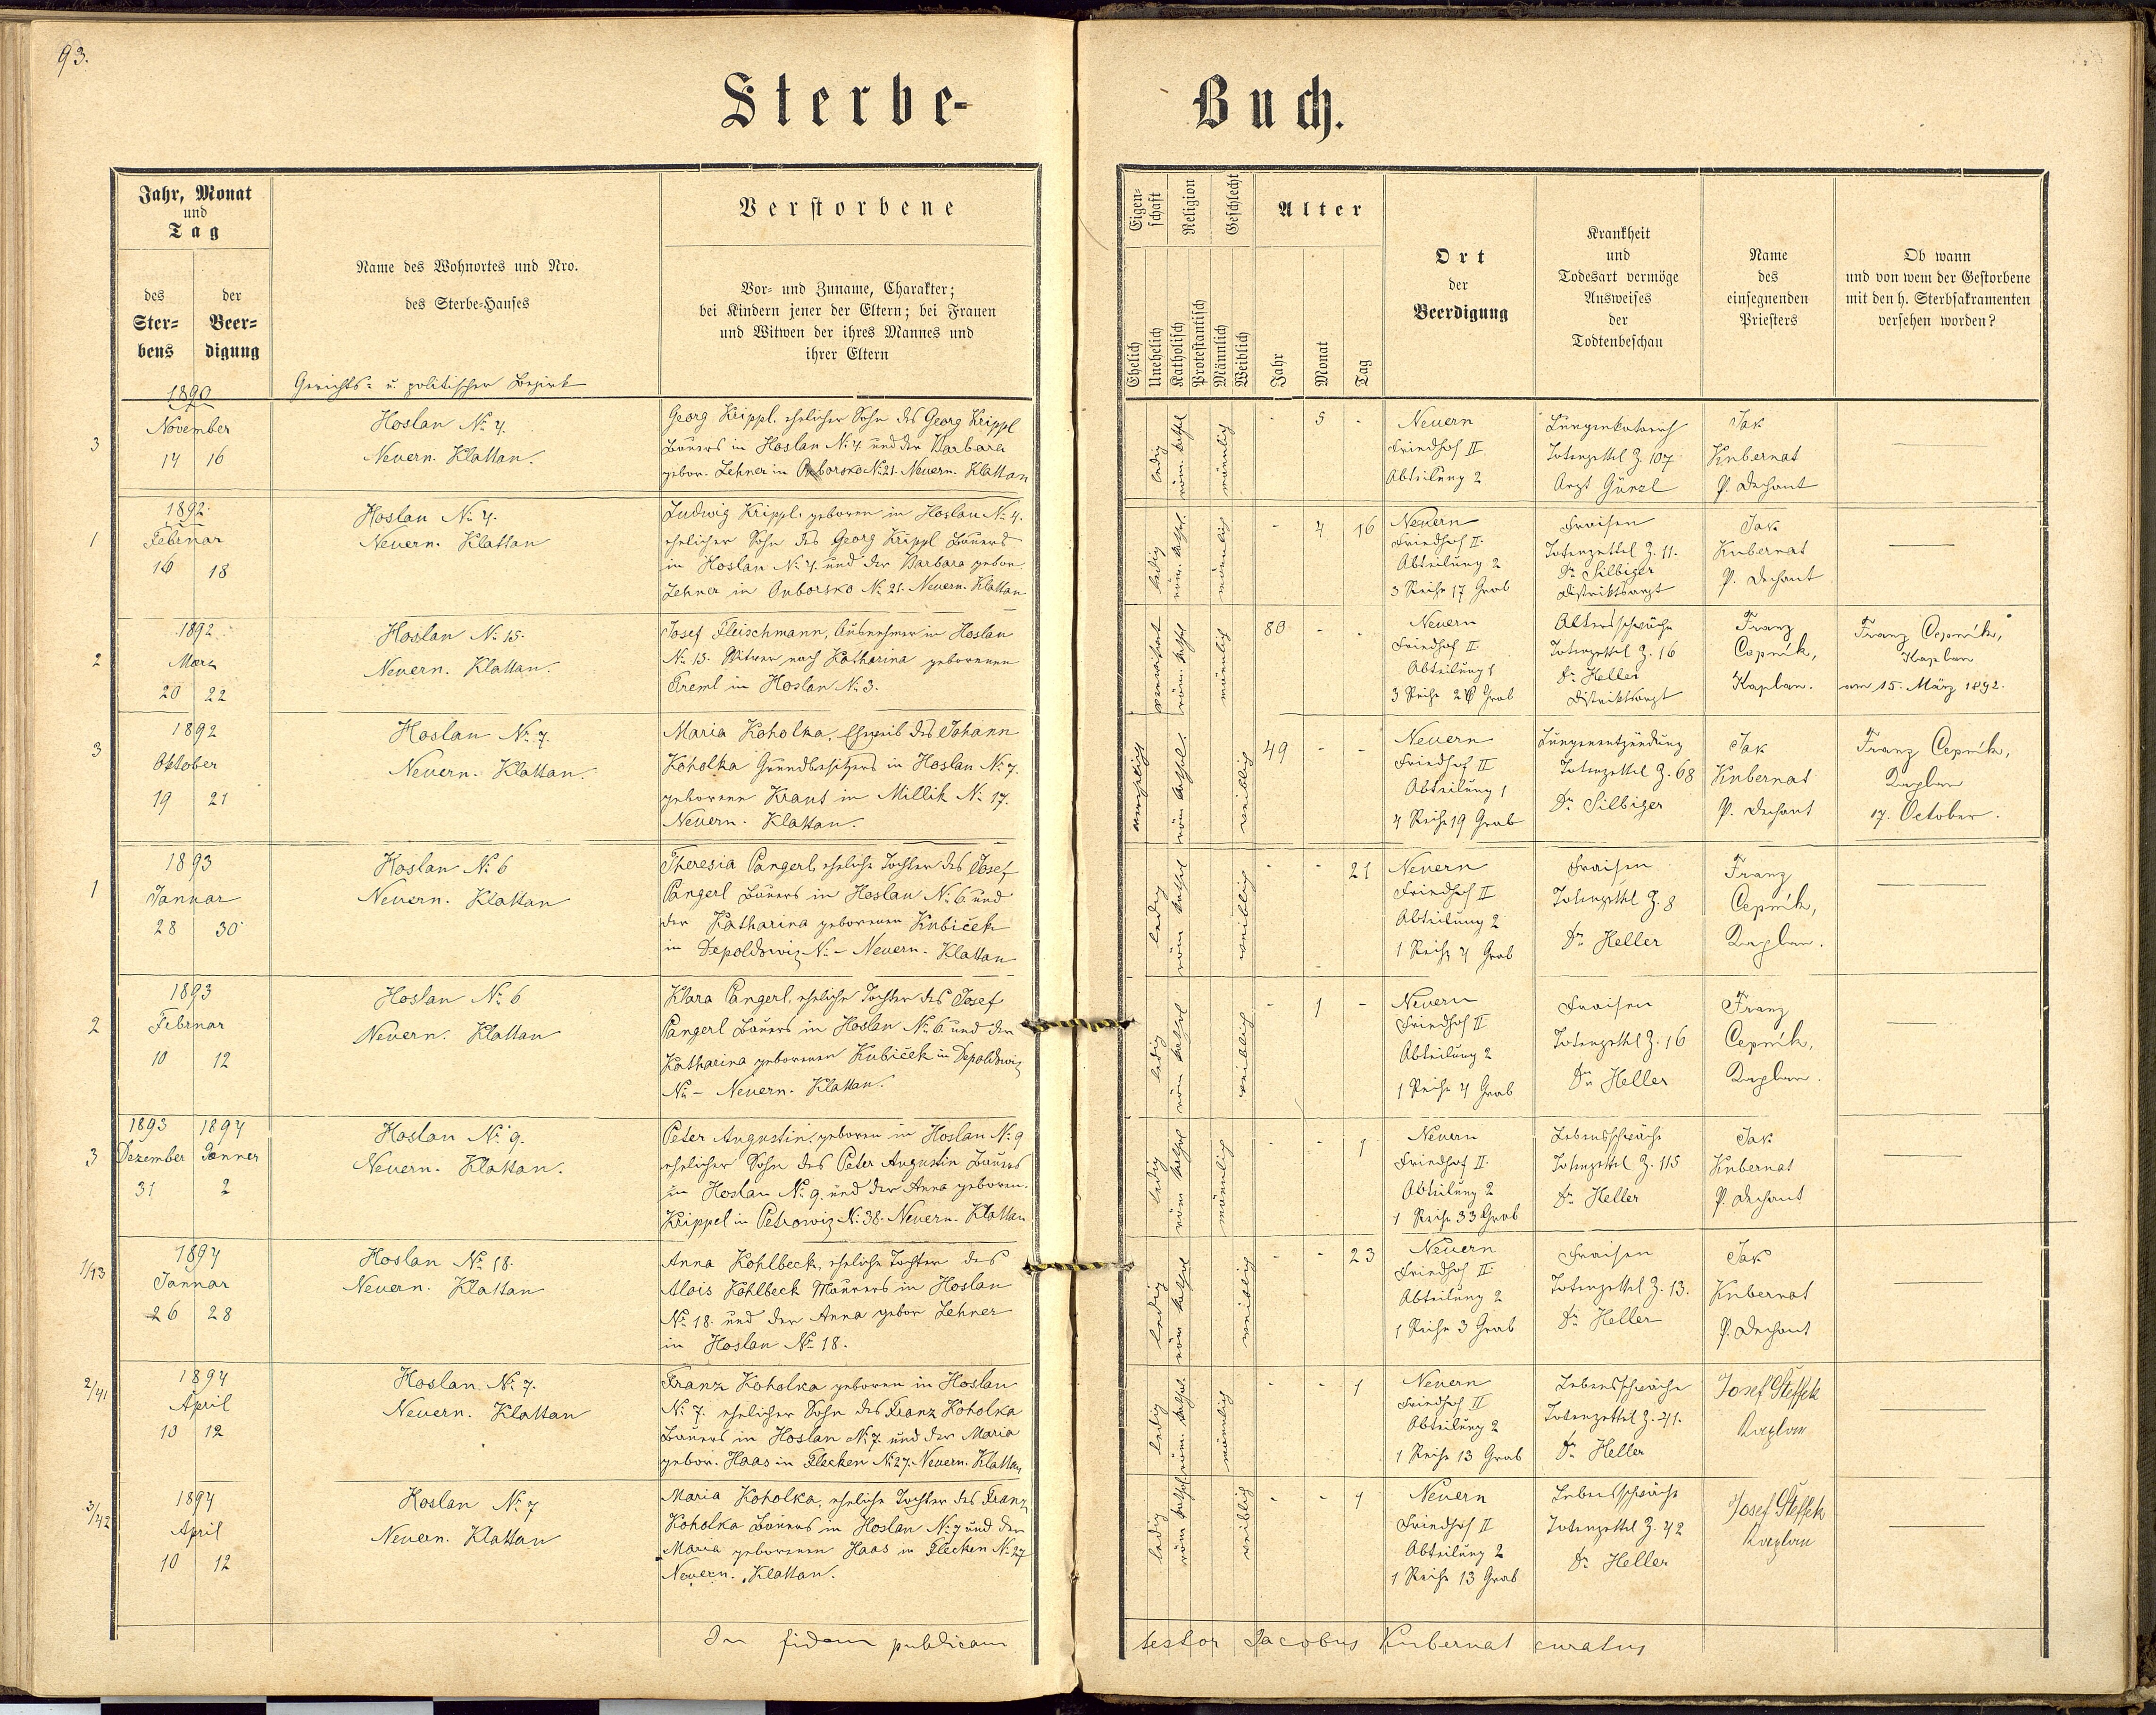 93.
Sterbe-
Buch.
Jahr, Monat
und
Tag
des
Ster-
bens
der
Beer-
digung
1890
Name des Wohnortes und Nro.
des Sterbe-Hauses
Gerichts- u. politischer Bezirk
Verstorbene
Vor- und Zuname, Charakter;
bei Kindern jener der Eltern; bei Frauen
und Witwen der ihres Mannes und
ihrer Eltern
Eigen-
schaft
Religion
Geschlecht
Ehelich
Unehelich
Katholisch
Protestantisch
Männlich
Weiblich
Alter
Jahr
Monat
Tag
Ort
der
Beerdigung
Krankheit
und
Todesart vermöge
Ausweises
der
Todtenbeschau
Name
des
einsegnenden
Priesters
Ob wann
und von wem der Gestorbene
mit den h. Sterbsakramenten
versehen worden?
3
November
14 16
Hoslau № 4.
Neuern. Klattau.
Georg Krippl. ehelicher Sohn des Georg Krippl
Bauers in Hoslau № 4 und der Barbara
gebor. Lehner in Onborsko № 21. Neuern. Klattau
ledig
röm. kathol
männlich
- 5 -
Neuern
Friedhof II.
Abteilung 2
Lungenkatarrh
Totenzettel Z. 107
Arzt Günzl
Jak
Kubernat
P. Dechant
1
1892
Februar
16 18
Hoslau № 4.
Neuern. Klattau
Ludwig Krippl. geboren in Hoslau № 4.
ehelicher Sohn des Georg Krippl Bauers
in Hoslau № 4. und der Barbara gebor.
Lehner in Onborsko № 21. Neuern. Klattau
ledig
röm. kathol.
männlich
- 4 16
Neuern
Friedhof II.
Abteilung 2
3 Reihe 17 Grab
Fraisen
Totenzettel Z. 11.
Dr Silbiger
Distriktsarzt
Jak
Kubernat
P. Dechant
2
1892
März
20 22
Hoslau № 15.
Neuern. Klattau.
Josef Fleischmann, Ausnehmer in Hoslau
№ 13. Witwer nach Katharina geborenen
Treml in Hoslau № 3.
verwitwet
röm. kathol
männlich
80 - -
Neuern
Friedhof II.
Abteilung 1
3 Reihe Grab
Altersschwäche
Totenzettel Z. 16
Dr Heller
Distriktsarzt
Franz
Cepnik,
Kaplan.
Franz Cepnik,
Kaplan
am 15. März 1892.
3
1892
Oktober
19 21
Hoslau № 7.
Neuern. Klattau.
Maria Koholka, Eheweib des Johann
Koholka Grundbesitzers in Hoslau № 7.
geborene Kraus in Millik № 17.
Neuern. Klattau.
verehelicht
röm kathol.
weiblich
49 - -
Neuern
Friedhof II
Abteilung 1
4 Reihe 19 Grab
Lungenentzündung
Totenzettel Z. 68
Dr Silbiger
Jak
Kubernat
P. Dechant
Franz Cepnik,
Kaplan
17. October.
1
1893
Januar
28 30
Hoslau № 6
Neuern. Klattau
Theresia Pangerl, eheliche Tochter des Josef
Pangerl Bauers in Hoslau № 6 und
der Katharina geborenen Kubiček
in Depoldowiz № - Neuern. Klattau
ledig
röm kathol
weiblich
- - 21
Neuern
Friedhof II
Abteilung 2
1 Reihe 4 Grab
Fraisen
Totenzettel Z. 8
Dr Heller
Franz
Cepnik,
Kaplan.
2
1893
Februar
10 12
Hoslau № 6
Neuern. Klattau
Klara Pangerl, eheliche Tochter des Josef
Pangerl Bauers in Hoslau № 6 und der
Katharina geborenen Kubiček in Depoldowiz
№ - Neuern. Klattau.
ledig
röm kathol
weiblich
- 1 -
Neuern
Friedhof II
Abteilung 2
1 Reihe 4 Grab
Fraisen
Totenzettel Z. 16
Dr Heller
Franz
Cepnik,
Kaplan.
3
1893 1894
Dezember Jänner
31 2
Hoslau № 9.
Neuern. Klattau.
Peter Augustin, geboren in Hoslau № 9
ehelicher Sohn des Peter Augustin Bauers
in Hoslau № 9. und der Anna geboren.
Krippel in Petrowiz № 38. Neuern. Klattau
ledig
röm kathol
männlich
- - 1
Neuern
Friedhof II.
Abteilung 2
1 Reihe 33 Grab
Lebensschwäche
Totenzettel Z. 115
Dr Heller
Jak
Kubernat
P. Dechant
1/13
1894
Januar
26 28
Hoslau № 18.
Neuern. Klattau
Anna Kohlbeck, eheliche Tochter des
Alois Kohlbeck Maurers in Hoslau
№ 18. und der Anna gebor Lehner
in Hoslau № 18.
ledig
röm kathol
weiblich
- - 23
Neuern
Friedhof II.
Abteilung 2
1 Reihe 3 Grab
Fraisen
Totenzettel Z. 13.
Dr Heller
Jak
Kubernat
P. Dechant
2/41
1894
April
10 12
Hoslau № 7.
Neuern. Klattau
Franz Koholka geboren in Hoslau
№ 7. ehelicher Sohn des Franz Koholka
Bauers in Hoslau № 7. und der Maria
gebor. Haas in Flecken № 27. Neuern. Klattau
ledig
röm. kathol.
männlich
- - 1
Neuern
Friedhof II
Abteilung 2
1 Reihe 13 Grab
Lebensschwäche
Totenzettel Z. 41.
Dr Heller
Josef Steffek
Kaplan
3/42
1894
April
10 12
Hoslau № 7
Neuern. Klattau
Maria Koholka, eheliche Tochter des Franz
Koholka Bauers in Hoslau № 7 und der
Maria geborenen Haas in Flecken № 27
Neuern. Klattau.
ledig
röm kathol
weiblich
- - 1
Neuern
Friedhof II
Abteilung 2
1 Reihe 13 Grab
Lebensschwäche
Totenzettel Z. 42
Dr Heller
Josef Steffek
Kaplan
In fidem publicam
testor Jacobus Kubernat curatus